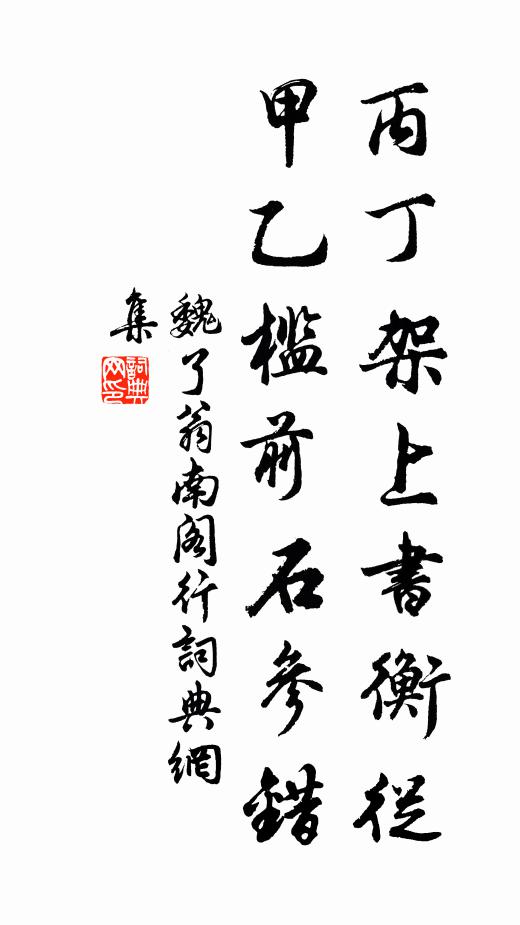 丙丁架上書衡從
甲乙檻前石參錯
魏了翁南閣行詞典網
集
詞典
网印